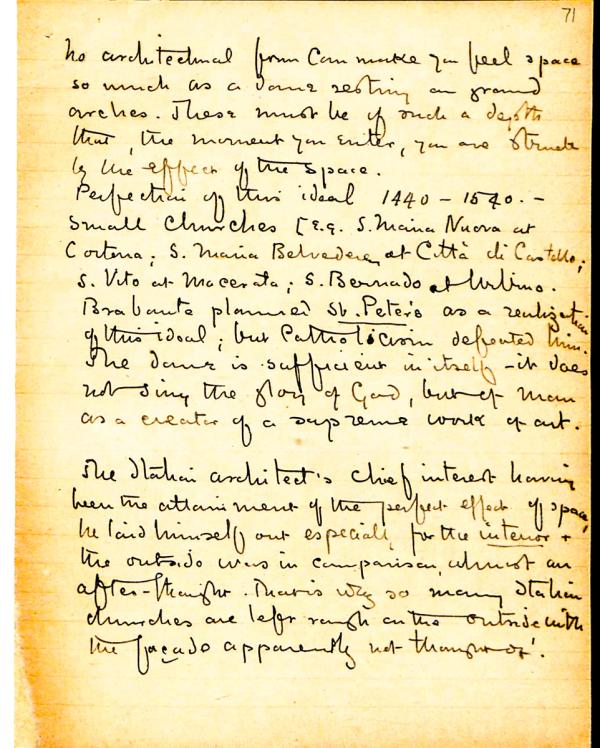 71
No architectural form can make you feel space
so much as a dome resting on round
arches. These must be of such a depth
that, the moment you enter, you are struck
by the effect of the space.
Perfection of this ideal 1440 - 1540. -
Small Churches [E.g. S. Maria Nuova at
Cortona; S. Maria Belvedere, at Città di Castello;
S. Vito at Macerata; S. Bernado at Urbino.
Brabante planned St. Peter's as a realization
of this ideal; but Catholicism defeated him.
The dome is sufficient in itself - it does
not sing the glory of God, but of man
as a creator of a supreme work of art.
The Italian architect's chief interest having
been the attainment of the perfect effect of space,
he laid himself out especially for the interior &
the outside was in comparison, almost an
after-thought. That is why so many Italian
churches are left rough on the outside with
the façado apparently not thought of!